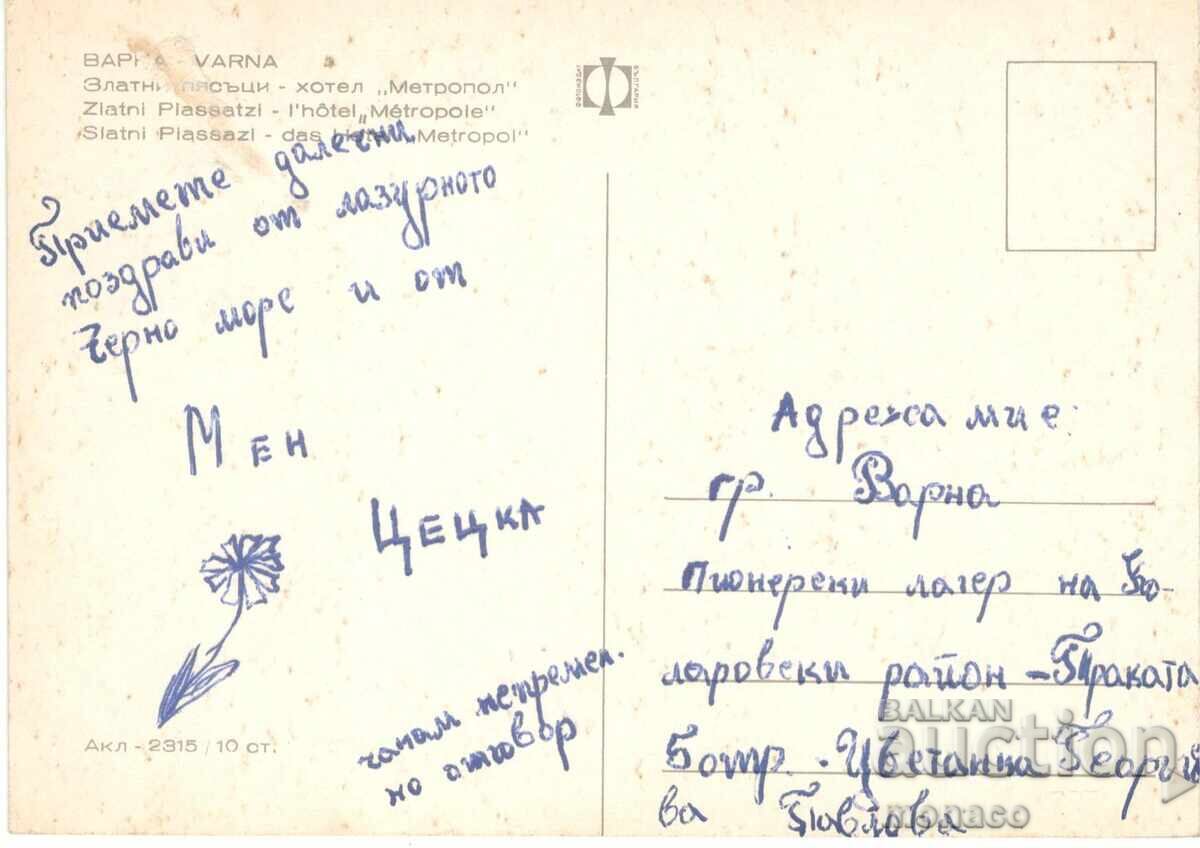 ВАРНА - VARNA
Златни пясъци - хотел „Метропол"
Zlatni Piassatzi - l'hôtel „Métropole"
Slatni Piassazi - das Hotel „Metropol"
ФОТОИЗДАТ БЪЛГАРИЯ
Приемете далечни
поздрави от лазурното
Черно море и от
Мен
Цецка
чакам непремен.
но отговор
Акл - 2315 / 10 ст.
Адреса ми е:
гр. Варна
пионерски лагер на
район - Траката
5 отр. - Цветанка Георгие
ва Павлова
BALKAN
auction
monaco